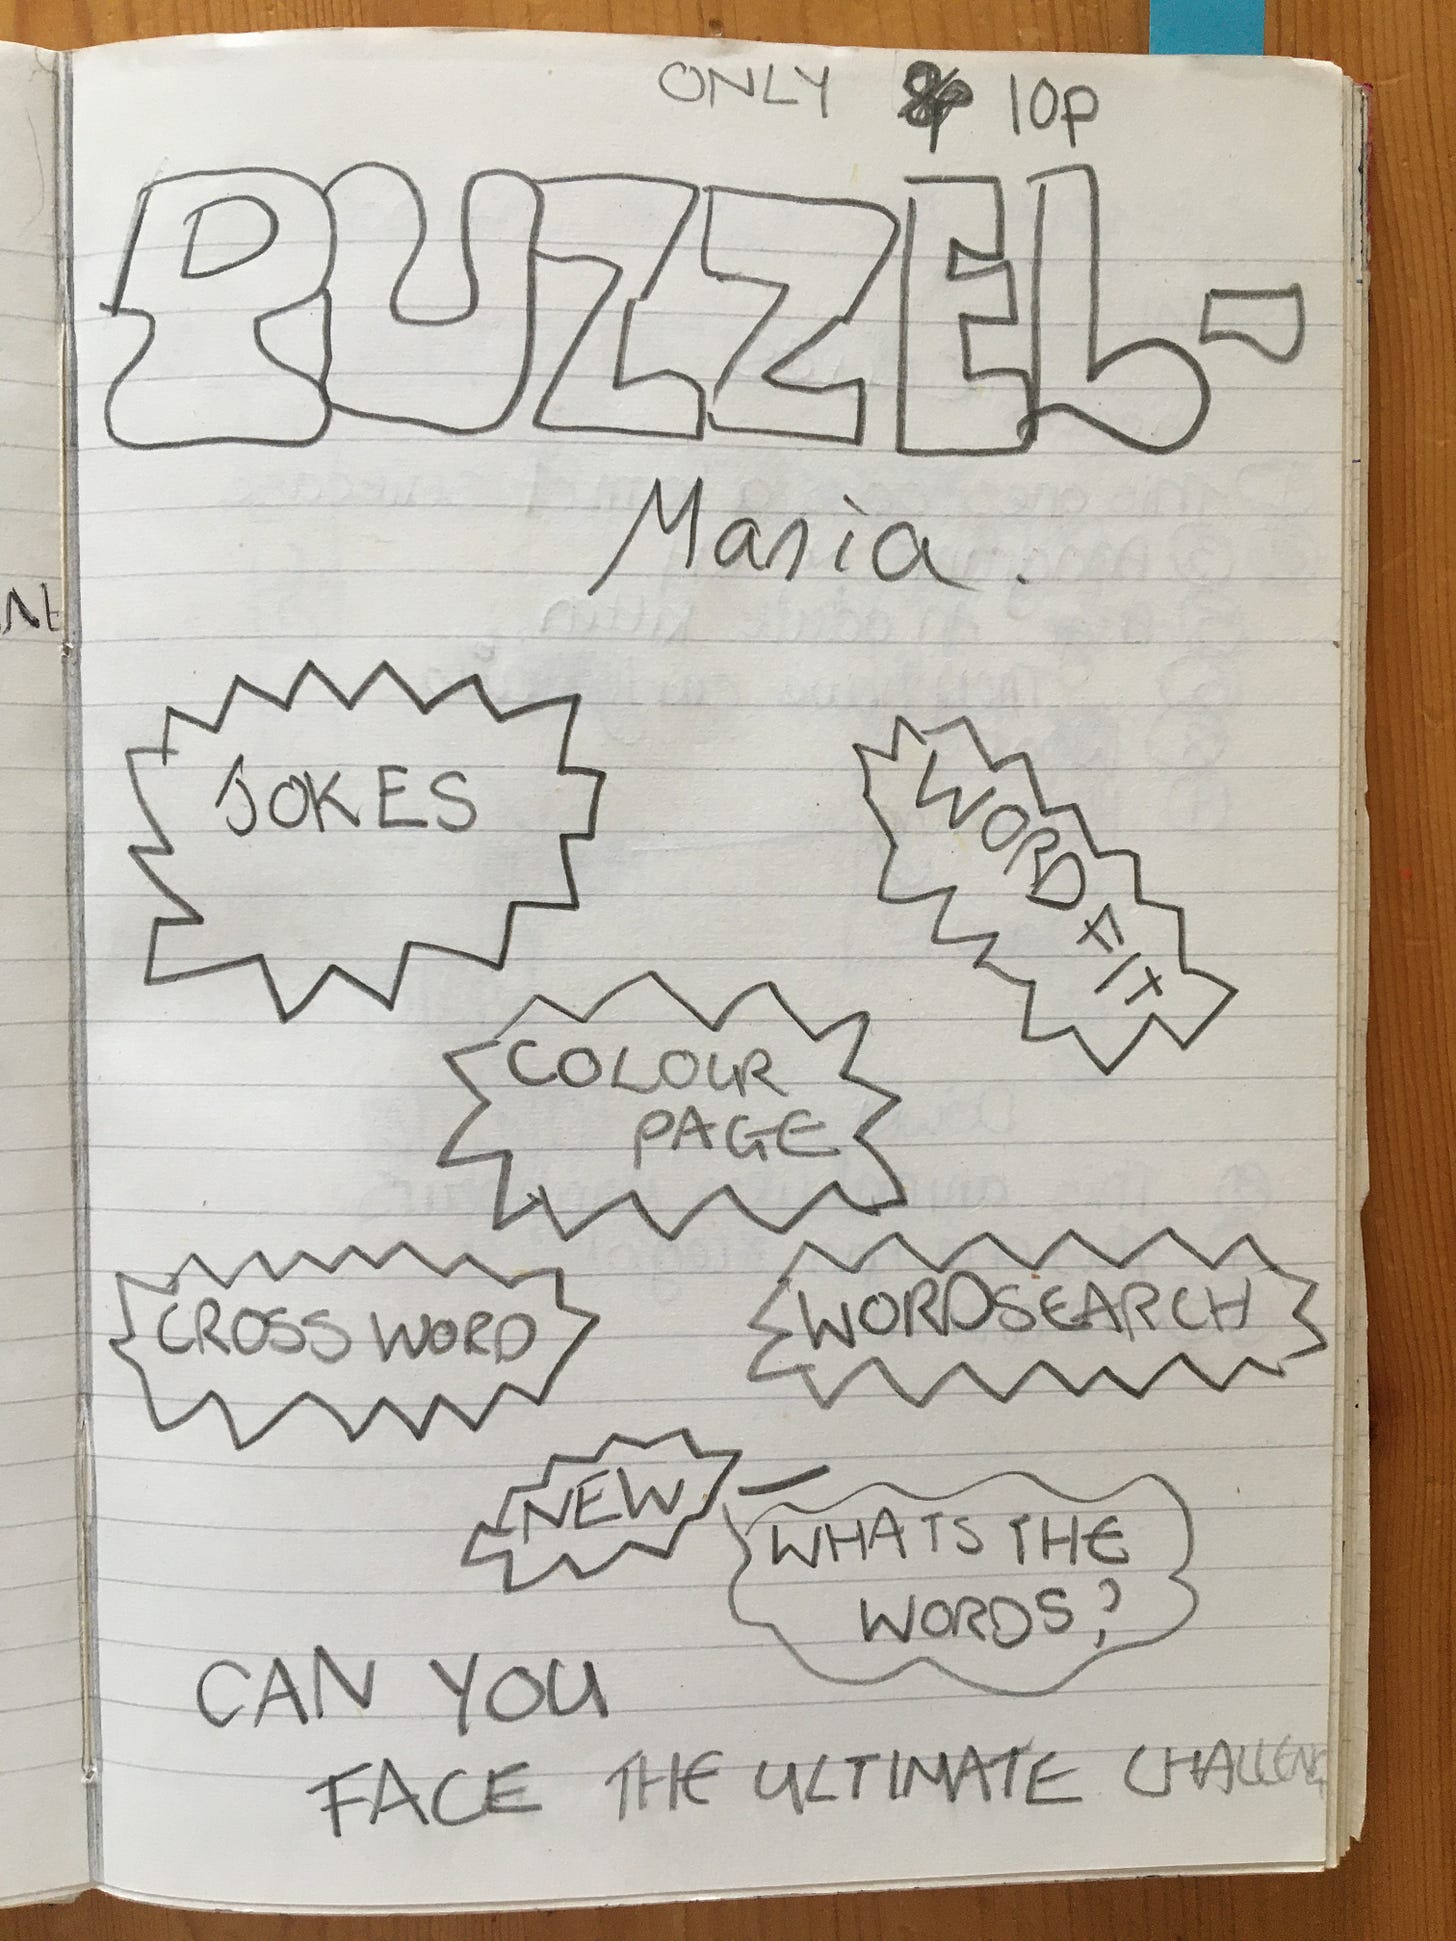 ONLY 10p
PUZZEL-
Mania.
JOKES
WORD FIT
COLOUR
PAGE
CROSS WORD
WORDSEARCH
NEW
WHATS THE
WORDS?
CAN YOU
FACE THE ULTIMATE CHALLENG